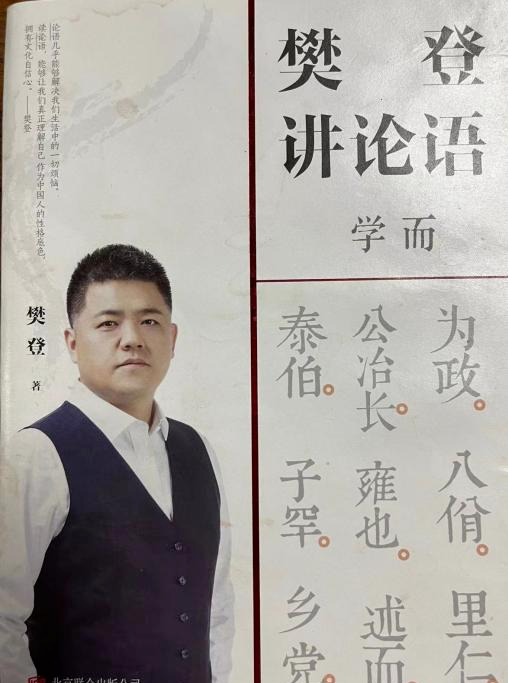 樊登
讲论语
学而
为政。
八佾。
里仁
公冶长。
雍也。
述而
泰伯。
子罕。
乡党
论语几乎能够解决我们生活中的一切烦恼。
读论语，能够让我们真正理解自己作为中国人的性格底色，
拥有文化自信心。——樊登
樊登 著
北京联合出版公司